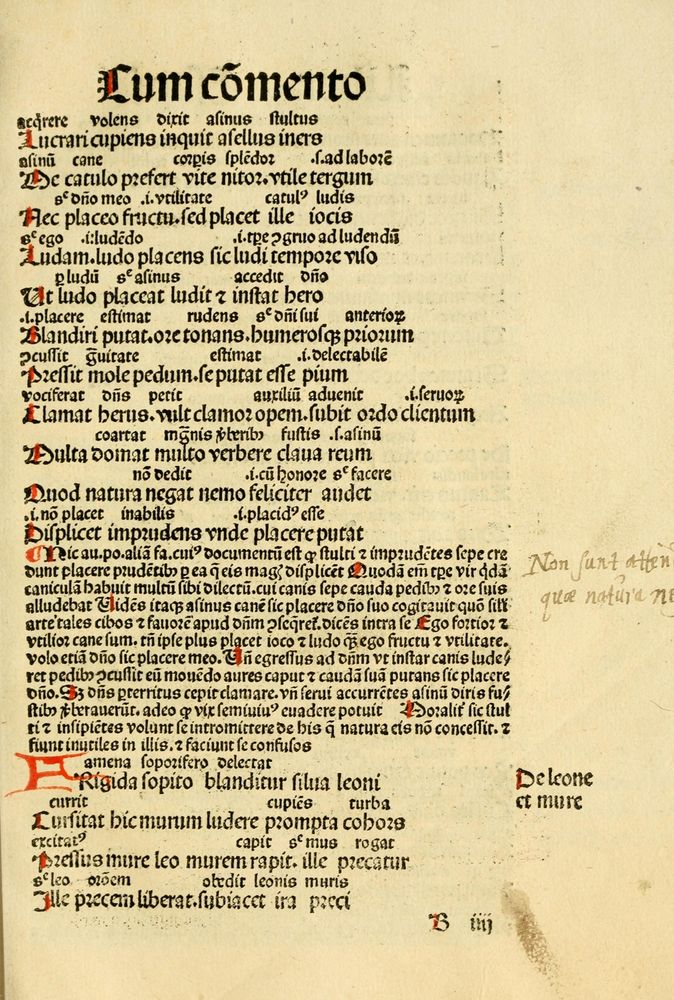 Cum cõmento
acq̃rere volens dixit asinus stultus
Lucrari cupiens inquit asellus iners
asinũ cane corpis splẽdor .s. ad laborẽ
Me catulo prefert vite nitor. vtile tergum
sꝫ dño meo .i. vtilitate catulꝰ ludis
Nec placeo fructu. sed placet ille iocis
sꝫ ego .i: ludẽdo .i. tꝑe ↄgruo ad ludendũ
Ludam. ludo placens sic ludi tempore viso
ꝑ ludũ sꝫ asinus accedit dño
Ut ludo placeat ludit ⁊ instat hero
.i. placere estimat rudens sꝫ dñi sui anterioꝝ
Blandiri putat. ore tonans. humerosqꝫ priorum
ↄcussit g̃uitate estimat .i. delectabilẽ
Pressit mole pedum. se putat esse pium
vociferat dñs petit auxiliũ aduenit .i. seruoꝝ
Clamat herus. vult clamor opem. subit ordo clientum
coartat mg̃nis v̾beribꝰ fustis .s. asinũ
Multa domat multo verbere claua reum
nõ dedit .i. cũ honore sꝫ facere
Quod natura negat nemo feliciter audet
.i. nõ placet inabilis .i. placidꝰ esse
Displicet imprudens vnde placere putat
¶ Hic au. po. aliã fa. cuiꝰ documentũ est ꝙ stulti ⁊ imprudẽtes sepe cre
dunt placere prudẽtibꝰ ꝑ ea q̃ eis magꝭ displicẽt Quodã em̃ tꝑe vir q̃dã
caniculã habuit multũ sibi dilectũ. cui canis sepe cauda pedibꝰ ⁊ ore suis
alludebat Uidẽs itaqꝫ asinus canẽ sic placere dño suo cogitauit quõ sil̃i
arte tales cibos ⁊ fauorẽ apud dñm ↄseq̃ret̃. dicẽs intra se Ego fortior ⁊
vtilior cane sum. tñ ipse plus placet ioco ⁊ ludo q̃ꝫ ego fructu ⁊ vtilitate.
volo etiã dño sic placere meo. Uñ egressus ad dñm vt instar canis lude⸗
ret pedibꝰ ↄcussit eũ mouẽdo aures caput ⁊ caudã suã putans sic placere
dño. Sꝫ dñs ꝑterritus cepit clamare. vñ serui accurrẽtes asinũ diris fu⸗
stibꝰ v̾berauerũt. adeo ꝙ vix semiuiuꝰ euadere potuit Moralit̃ sic stul
ti ⁊ insipiẽtes volunt se intromittere de his q̃ natura eis nõ concessit. ⁊
fiunt inutiles in illis. ⁊ faciunt se confusos
amena soporifero delectat
FRigida sopito blanditur silua leoni
currit cupiẽs turba
Cursitat hic murum ludere prompta cohors
excitatꝰ capit sꝫ mus rogat
Pressus mure leo murem rapit. ille precatur
sꝫ leo orõem obedit leonis muris
Ille precem liberat. subiacet ira preci
B iiij
Non sunt
quæ natura
De leone
et mure